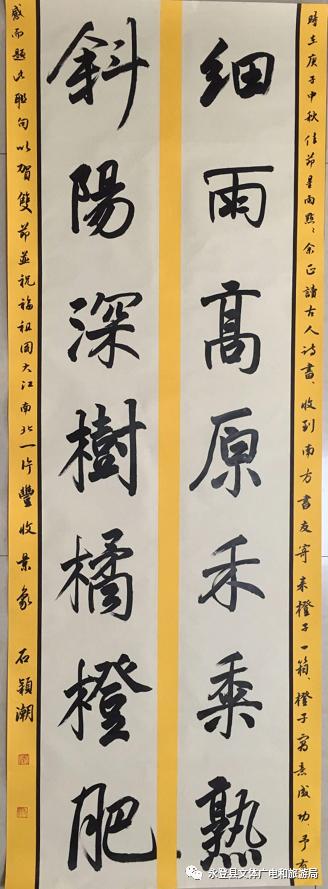 時在庚子中秋佳節星雨點點余正讀古人詩書、收到南方書友寄来橙子一箱、橙子寓意成功、予有
細雨高原禾黍熟
斜陽深樹橘橙肥
感而題此聯句以賀雙節並祝福祖國大江南北一片豐收景象
石穎潮
永登县文体广电和旅游局